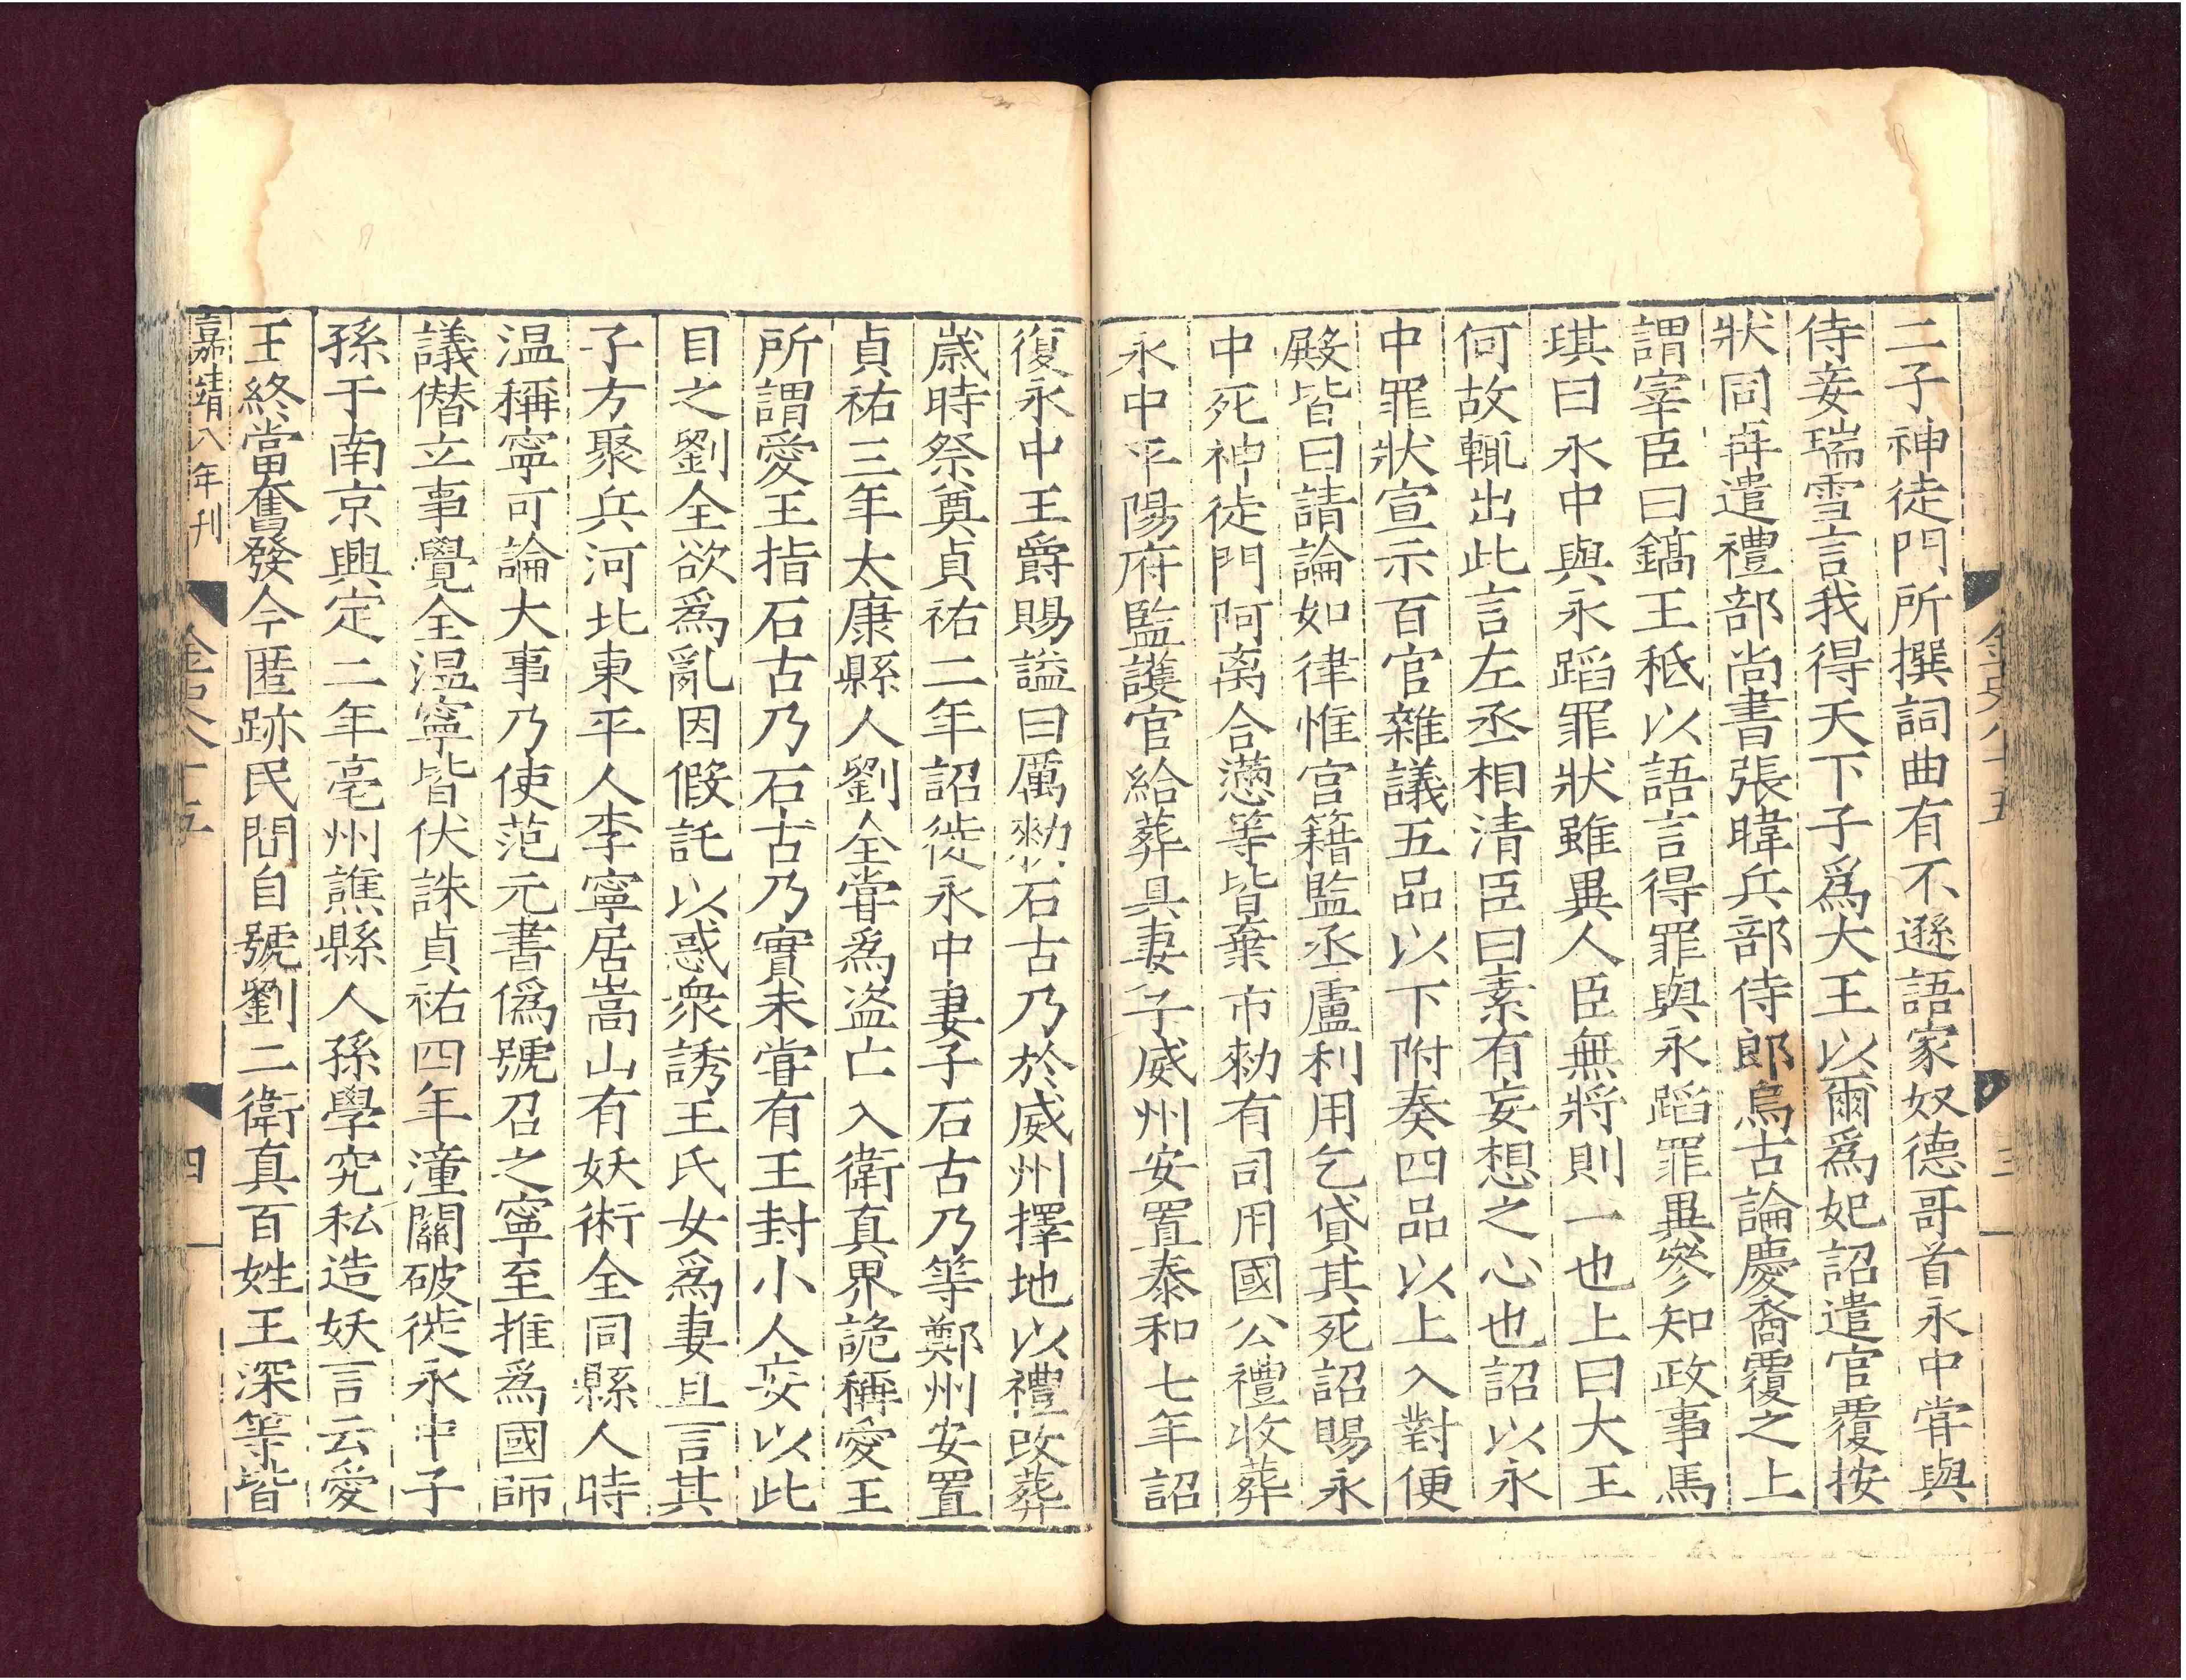 二子神徒門所撰詞曲有不遜語家奴德哥首永中甞與
侍妾瑞雪言我得天下子爲大王以爾爲妃詔遣官覆按
狀同再遣禮部尚書張暐兵部侍郎烏古論慶裔覆之上
謂宰臣曰鎬王秪以語言得罪與永蹈罪異參知政事馬
琪曰永中與永蹈罪狀雖異人臣無將則一也上曰大王
何故輒出此言左丞相清臣曰素有妄想之心也詔以永
中罪狀宣示百官雜議五品以下附奏四品以上入對便
殿皆曰請論如律惟宫籍監丞盧利用乞貸其死詔賜永
中死神徒門阿离合懣等皆棄市勑有司用國公禮收葬
永中平陽府監護官給葬具妻子威州安置泰和七年詔
金史八十五
三
復永中王爵賜謚曰厲勑石古乃於威州擇地以禮改葬
歲時祭奠貞祐二年詔徙永中妻子石古乃等鄭州安置
貞祐三年太康縣人劉全甞爲盗亡入衛真界詭稱愛王
所謂愛王指石古乃石古乃實未甞有王封小人妄以此
目之劉全欲爲亂因假託以惑衆誘王氏女爲妻且言其
子方聚兵河北東平人李寧居嵩山有妖術全同縣人時
温稱寧可論大事乃使范元書僞號召之寧至推爲國師
議僭立事覺全温寧皆伏誅貞祐四年潼關破徙永中子
孫于南京興定二年亳州譙縣人孫學究私造妖言云愛
王終當奮發今匿跡民間自號劉二衛真百姓王深等皆
嘉靖八年刊
金史八十五
四